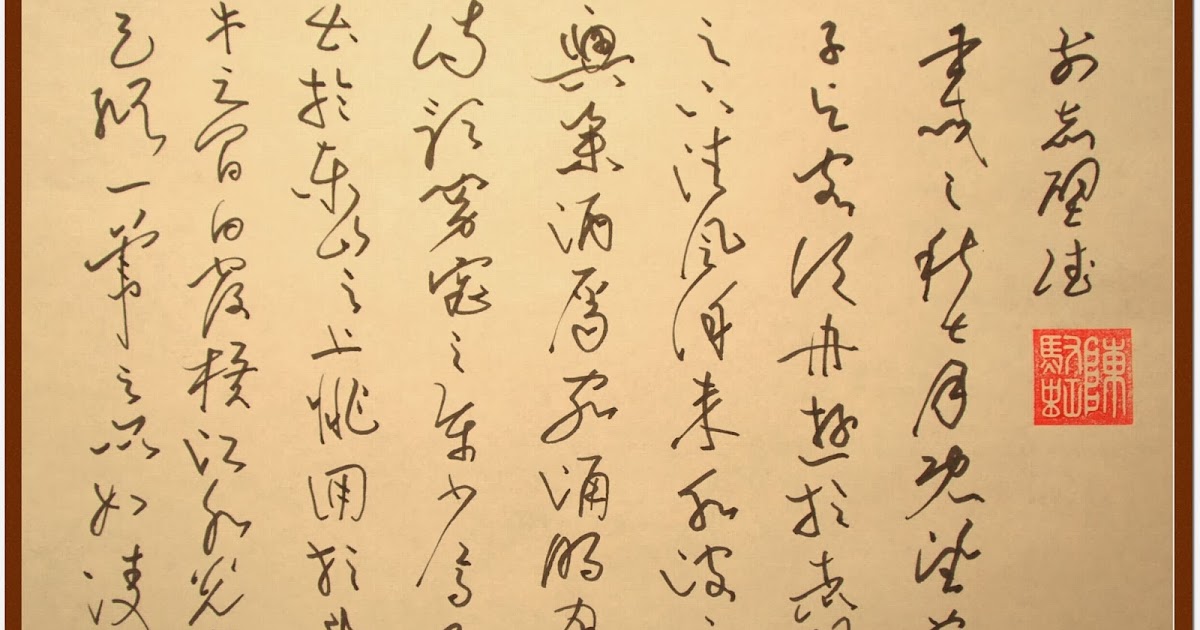 前赤壁賦
壬戌之秋七月既望
子与客泛舟遊於赤
之下清風徐來水波
興舉酒屬客誦明月
詩歌窈窕之章少焉
出於東山之上徘徊於
牛之間白露橫江水光
天縱一葦之所如凌